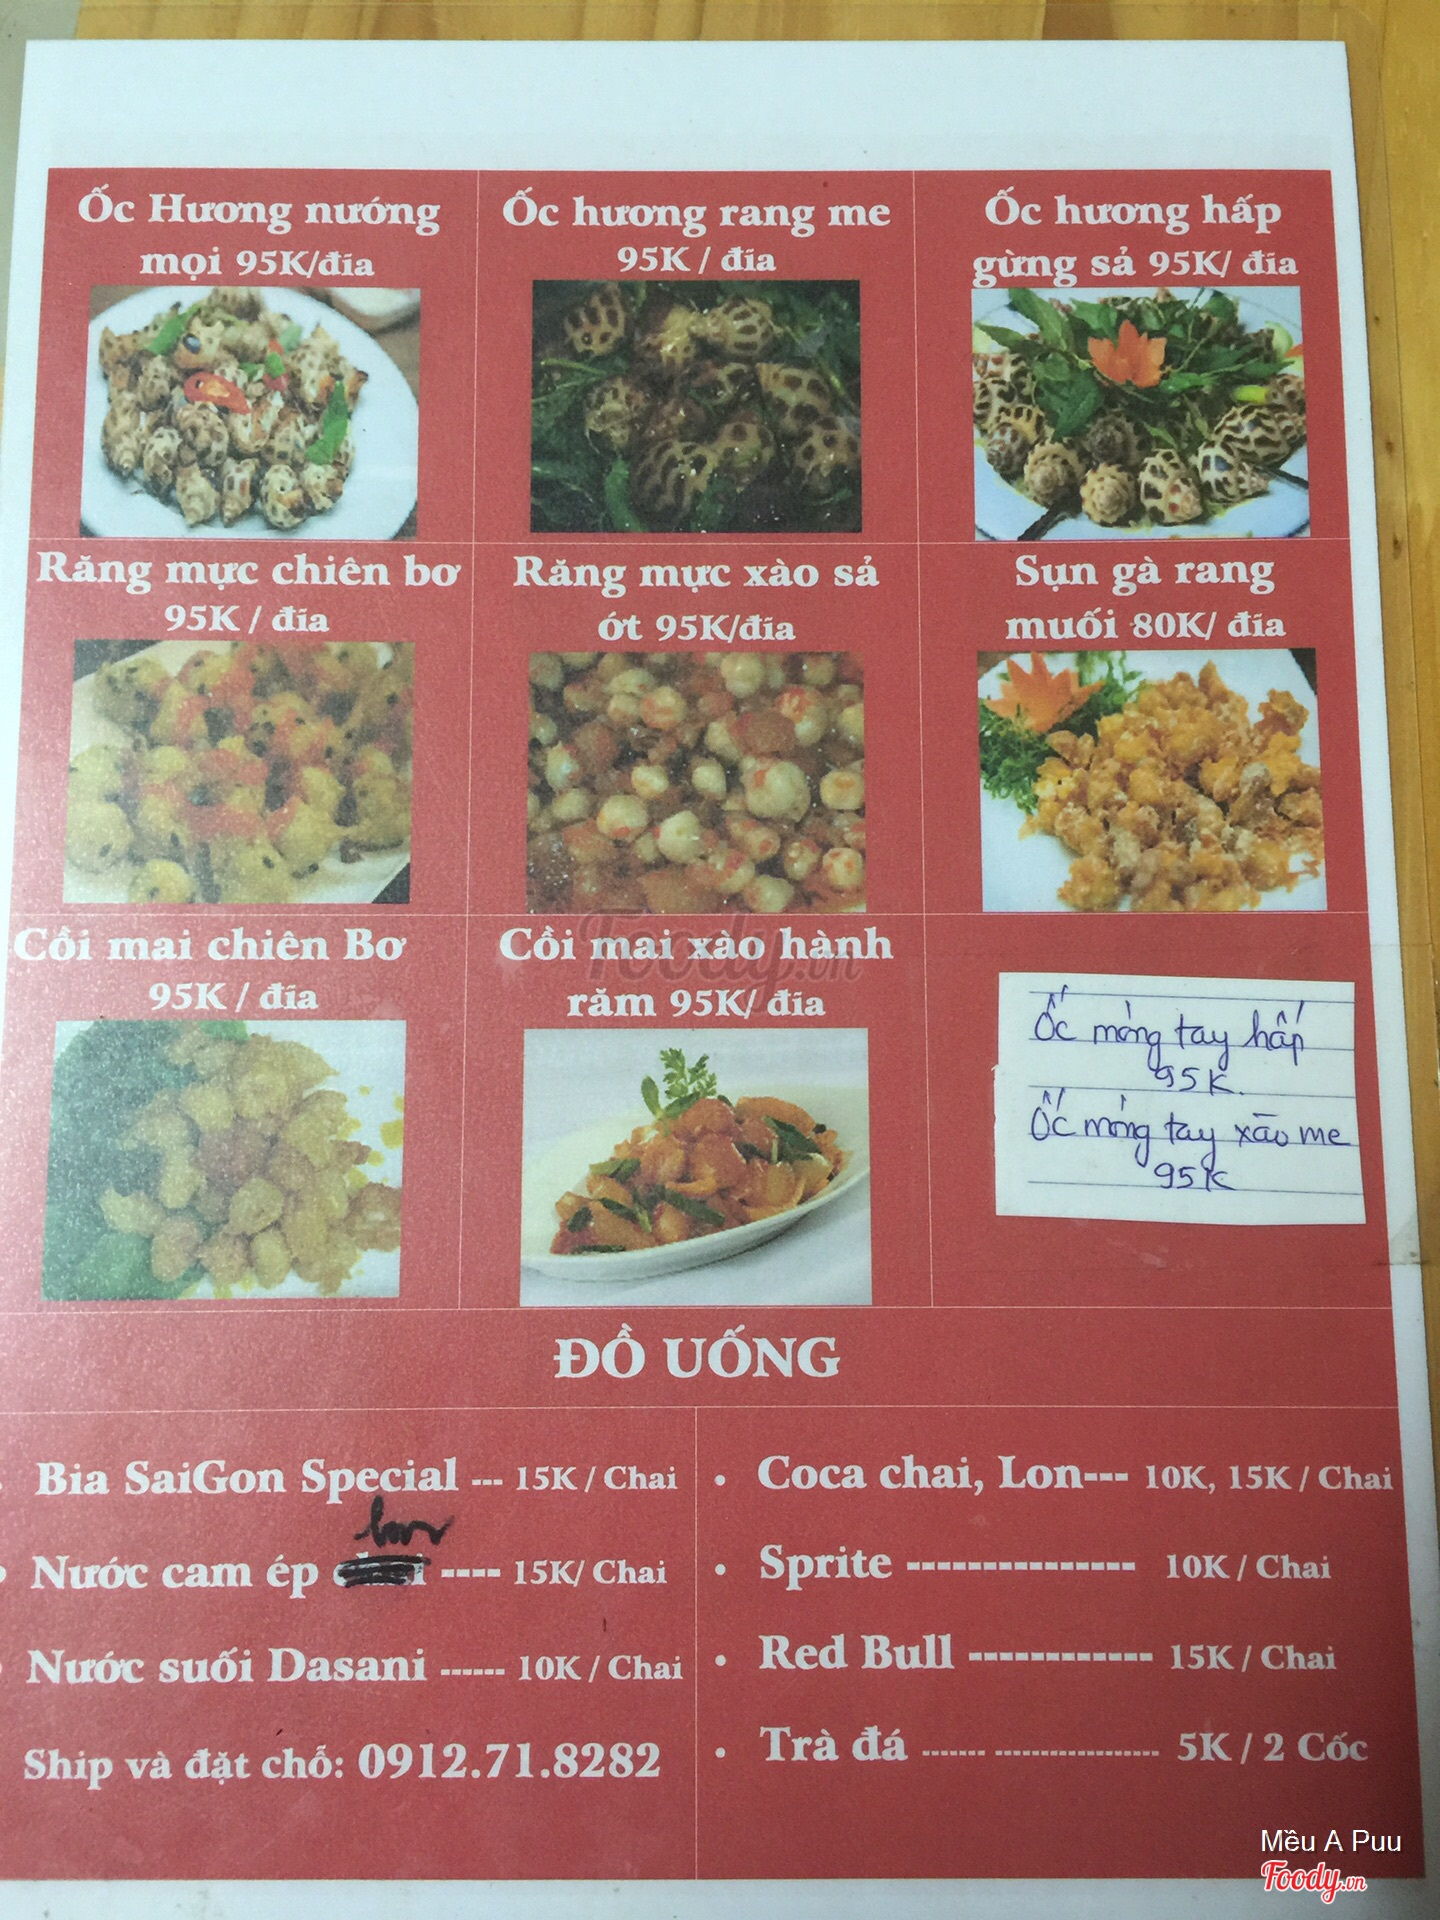 Ốc Hương nướng
mọi 95K/đĩa
Ốc hương rang me
95K / đĩa
Ốc hương hấp
gừng sả 95K/ đĩa
Răng mực chiên bơ
95K / đĩa
Răng mực xào sả
ớt 95K/đĩa
Sụn gà rang
muối 80K/ đĩa
Cồi mai chiên Bơ
95K / đĩa
Cồi mai xào hành
răm 95K/ đĩa
Ốc móng tay hấp
95K.
Ốc móng tay xào me
95K
Foody.vn
ĐỒ UỐNG
Bia SaiGon Special --- 15K / Chai
lon
Nước cam ép ---- 15K/ Chai
Nước suối Dasani ------ 10K / Chai
Ship và đặt chỗ: 0912.71.8282
• Coca chai, Lon--- 10K, 15K / Chai
• Sprite --------------- 10K / Chai
• Red Bull ------------ 15K / Chai
• Trà đá ------- ------------------ 5K / 2 Cốc
Mều A Puu
Foody.vn